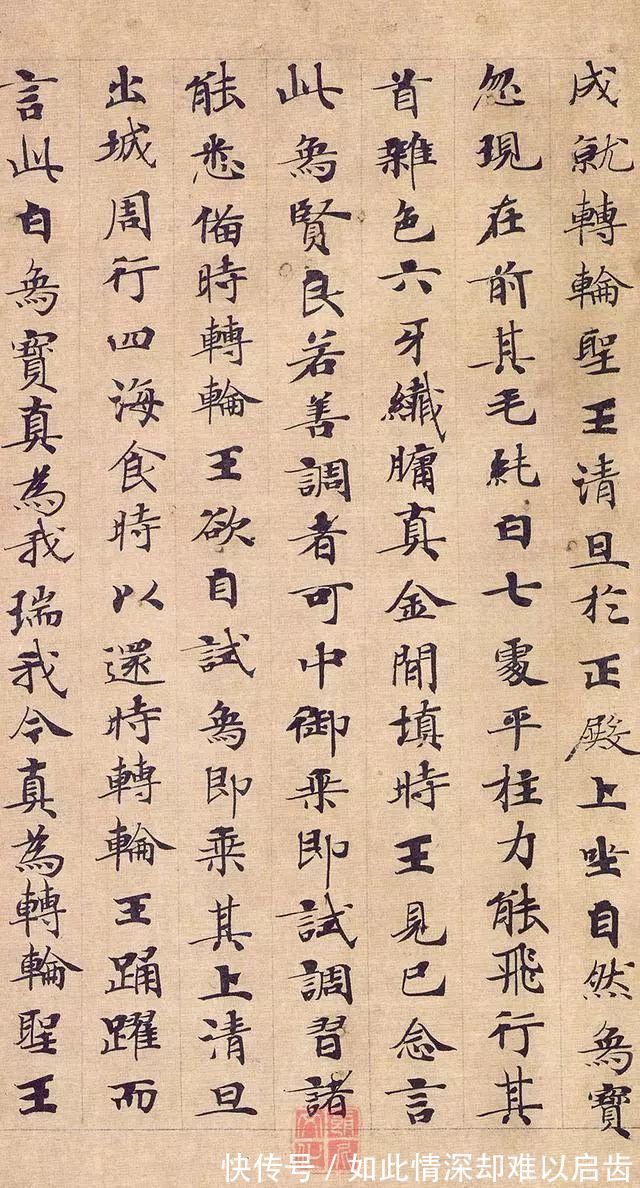 成就轉輪聖王清旦於正殿上坐自然爲寳
忽現在前其毛純白七處平柱力能飛行其
首雜色六牙纖𦟛真金閒填時王見已念言
此爲賢良若善調者可中御乘即試調習諸
能悉俻時轉輪王欲自試爲即乘其上清旦
出城周行四海食時以還時轉輪王踊躍而
言此白爲寳真為我瑞我今真為轉輪聖王
快传号/如此情深却难以启齿